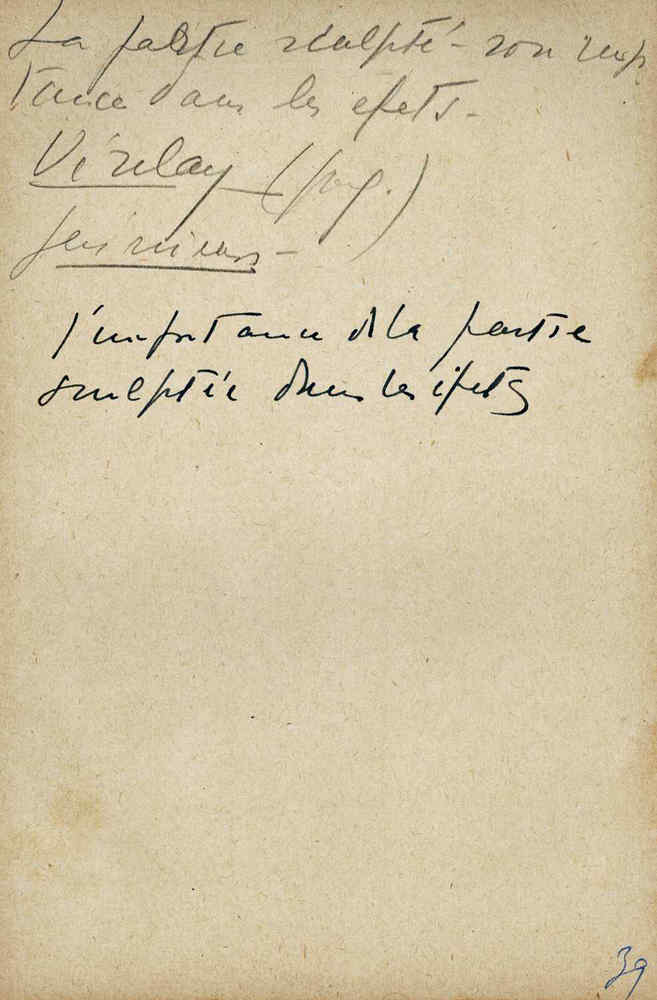 La partie sculpté - son imp
tance dans les efets -
Vézelay (
l'importance de la partie
sculptée dans les éfets
39